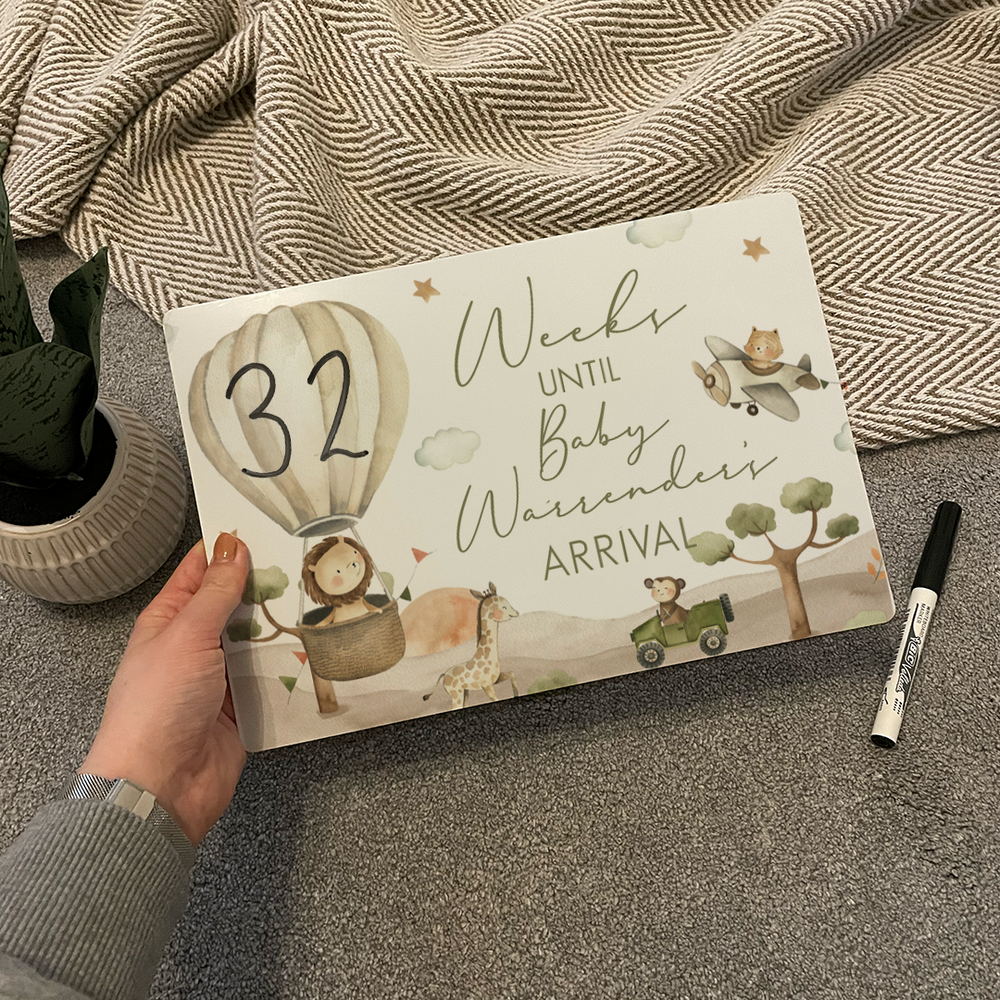 32
Weeks
UNTIL
Baby
Warrender's
ARRIVAL